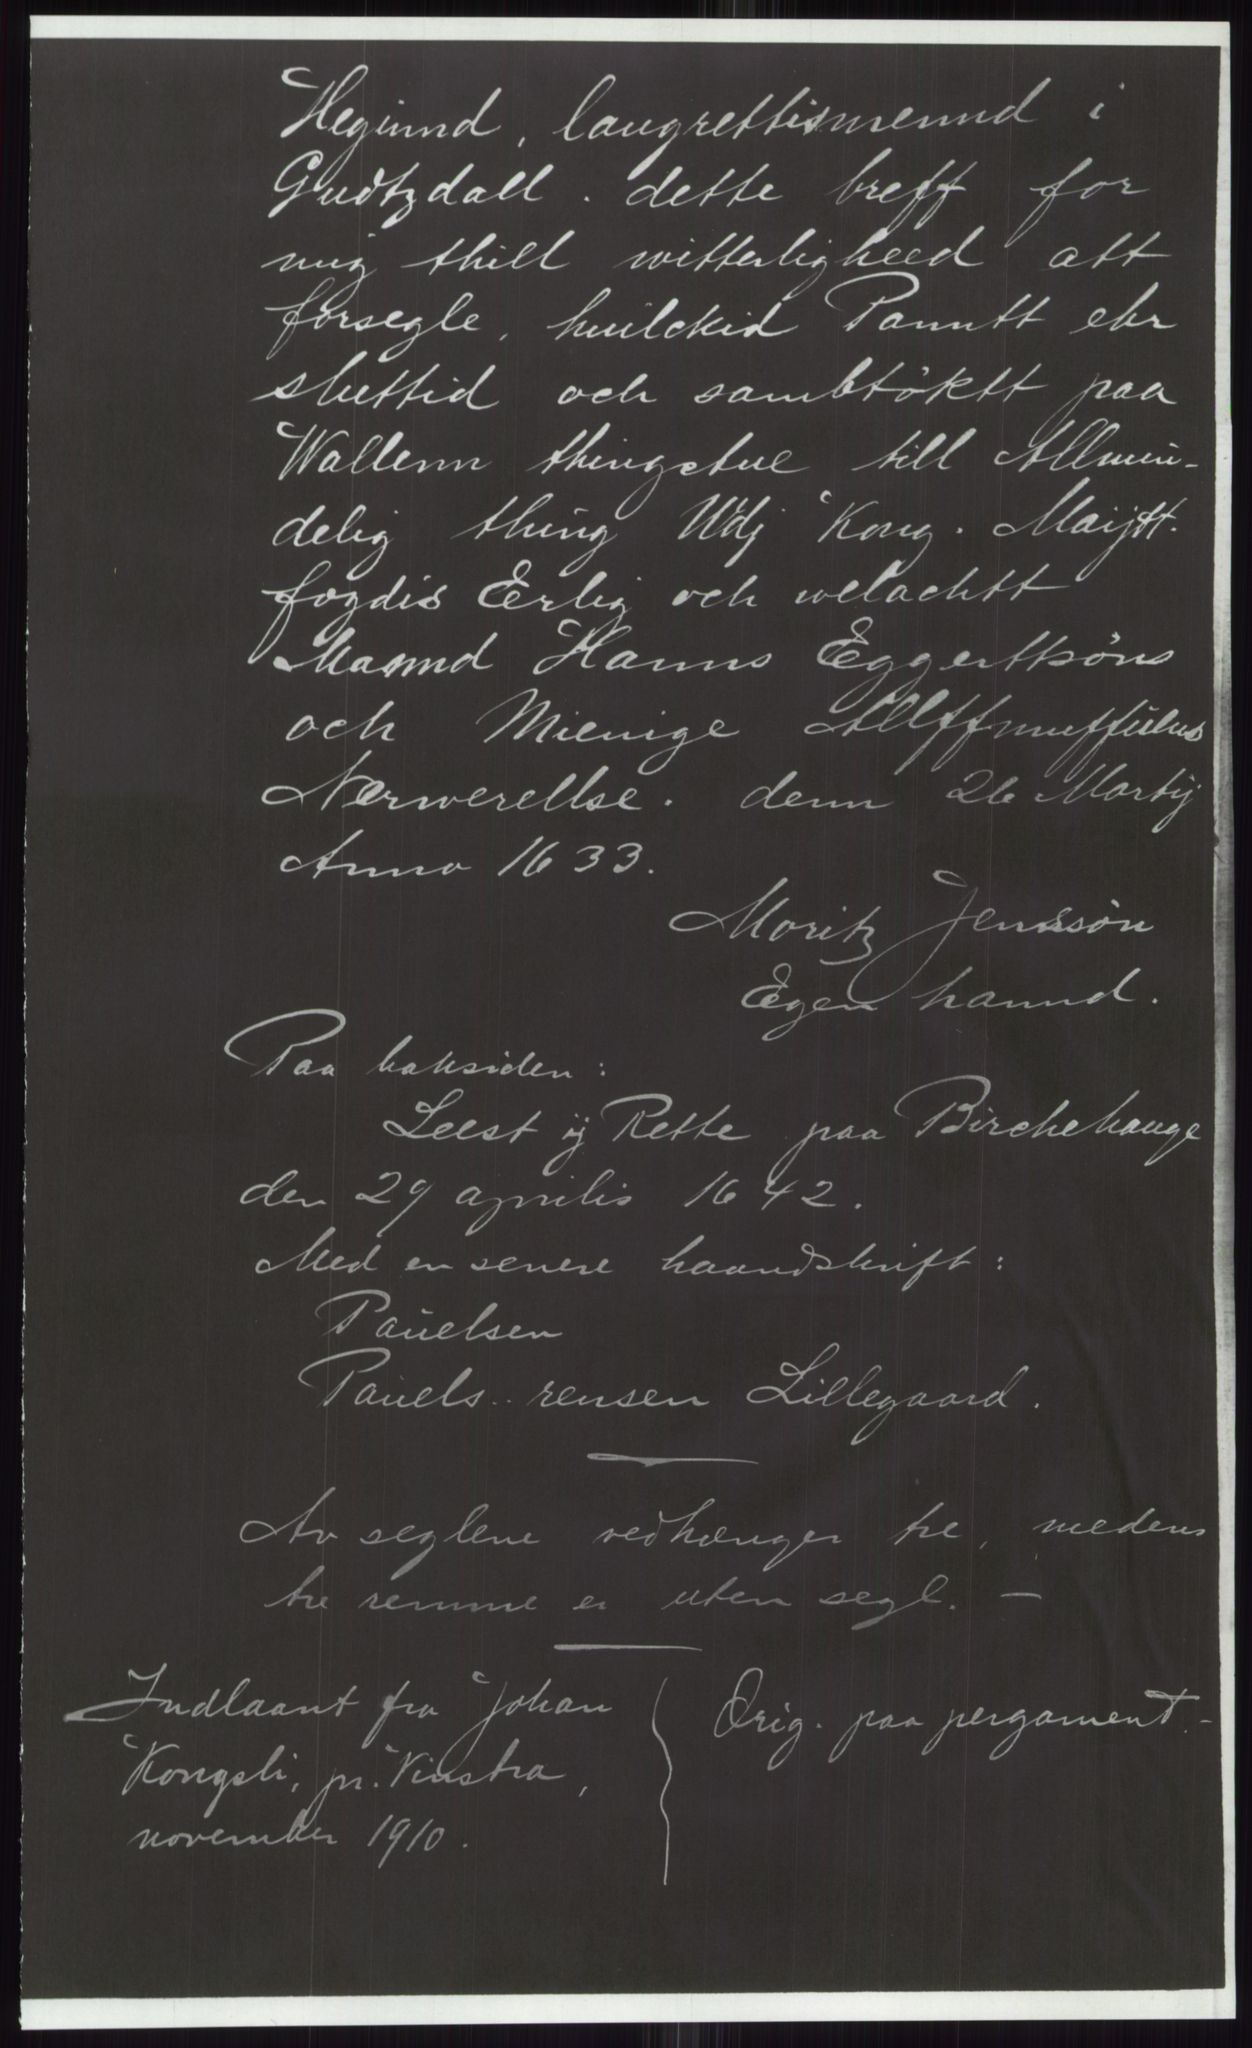 Hegund, laugrettismennd i
Gudtzdall. dette breff for
mig thill witterligheed att
forsegle, huilckid Panntt ehr
sluttid och sambtöktt paa
Wallenn thingstue till Allmin-
delig thing Udj Kong. Maijtt.
fogdis Erlig och welachtt
Mannd Hanns Eggerttsøns
och Mienige
Nærwerellse. denn 26 Martij
Anno 1633.
Moritz Jenssøn
Egen hannd.
Paa baksiden:
Leest ij Rette paa Birchehauge
den 29 aprilis 1642.
Med en senere haandskrift:
Pauelsen
Pauels.. rensen Lillegaard.
Av seglene vedhænger tre, medens
tre remme er uten segl. —
Indlaant fra Johan
Kongsli, pr. Vinstra,
november 1910.
Orig. paa pergament. -